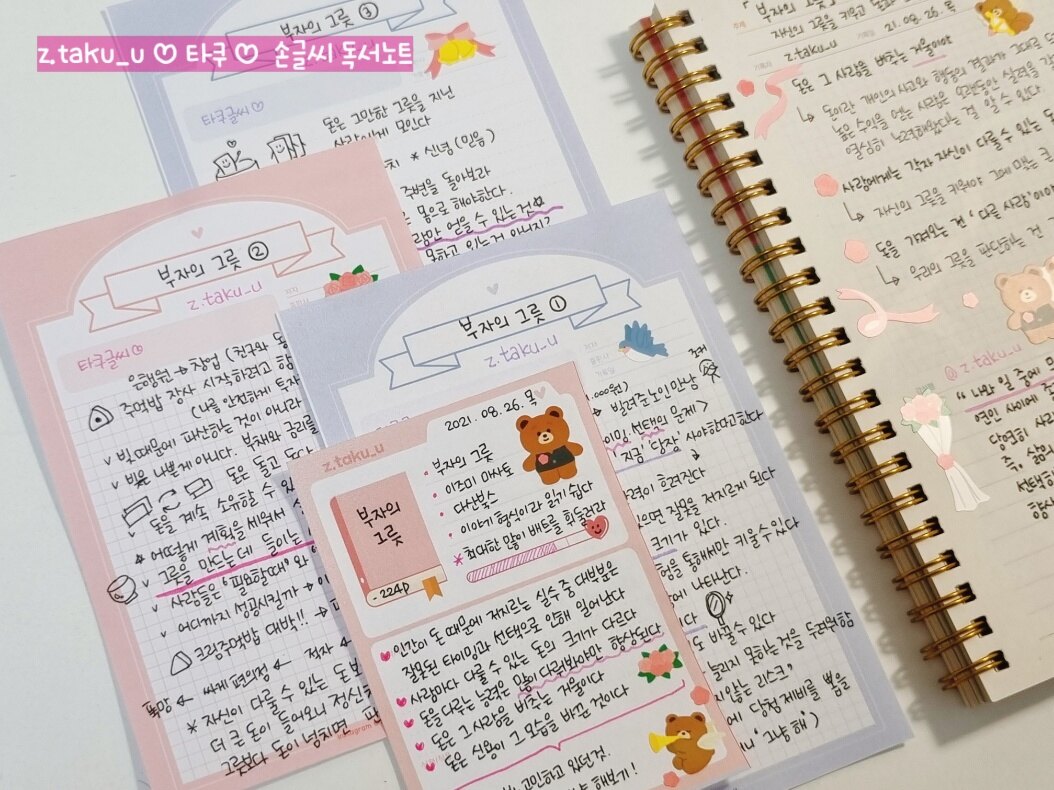 z.taku_u ♡ 타쿠 ♡ 손글씨 독서노트
부자의 그릇 ③
타쿠글씨 ♡
돈은 그만한 그릇을 지닌
사람에게 모인다
* 신념 (믿음)
주변을 돌아보라
몸으로 해야한다.
얻을 수 있는것
부자의 그릇 ②
z.taku_u
타쿠글씨 ♡
은행원 → 창업 (친구와 동
주먹밥 장사 시작하려고 함
(나름 안전하게 투자
v 빚때문에 파산하는 것이 아니라
v 빚은 나쁜게 아니다. 부채와 금리를
돈은 돌고 돈다
v 돈을 계속 소유할 수 있
* 어떻게 계획을 세워서
v 그릇을 만드는데 들이는
v 사람들은 '필요할때'와
v 어디까지 성공시킬까 →
크림주먹밥 대박!! →
폭망 ← 싸게 편의점 ← 적자
* 자신이 다룰 수 있는 돈보
더 큰 돈이 들어오니 정신
그릇보다 돈이 넘치면
부자의 그릇 ①
z.taku_u
,000원)
→ 빌려준 노인 만남
선택의 문제>
'지금' '당장' 사야한다고한다
력이 흐려진다
으면 잘못을 저지르게 된다
크기가 있다.
험을 통해서만 키울 수 있다
에 나타난다.
도 바꿀수 있다
늘리지 못하는 것을 두려워함
지않는 리스크'
에 당첨 제비를 뽑을
'그냥 해')
z.taku_u
2021. 08. 26. 목
부자의
그릇
- 224p
• 부자의 그릇
• 이즈미 마사토
• 다산북스
• 이야기 형식이라 읽기 쉽다
* 최대한 많이 배트를 휘둘러라
인간이 돈 때문에 저지르는 실수 중 대부분은
잘못된 타이밍과 선택으로 인해 일어난다
사람마다 다룰 수 있는 돈의 크기가 다르다
돈을 다루는 능력은 많이 다뤄봐야만 향상된다
돈은 그 사람을 비추는 거울이다
돈은 신용이 그 모습을 바꾼 것이다
고민하고 있던 것.
해보기!
부자의 그릇
자신의 그릇을 키우고
z.taku_u
21. 08. 26. 목
돈은 그 사람을 비추는 거울이야
↳ 돈이란 개인의 사고와 행동의 결과가 그대로
높은 수익을 얻는 사람은 오랫동안 실력을
열심히 노력해왔다는 걸 알 수 있다.
사람에게는 각자 자신이 다룰 수 있는 돈
↳ 자신의 그릇을 키워야 그에 맞는 큰
돈을 가져오는 건 '다른 사람'이야
↳ 우리의 그릇을 판단하는 건
@ z.taku_u
" 나와 일 중에
연인 사이에
당연히 사
즉, 삶의
선택하
항상